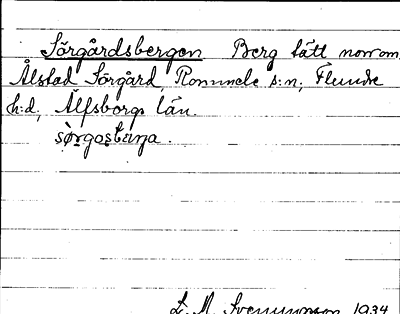 Sörgårdsbergen Berg tätt norr om
Ålstad Sörgård, Rommele s:n, Flundre
h:d, Älfsborgs län.
L. M. Svenungsson 1934